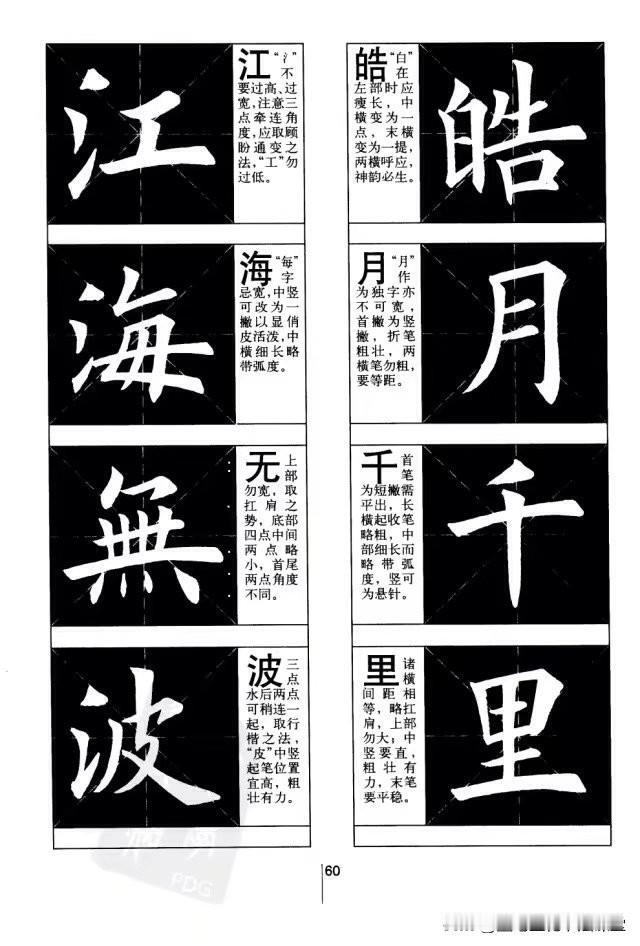 皓
皓 “白”
在
左部时应
瘦长，中
横变为一
点，末横
变为一提，
两横呼应，
神韵必生。
月
月 “月”
作
为独字亦
不可宽，
首撇为竖
撇，折笔
粗壮，两
横笔勿粗，
要等距。
千
千 首
笔
为短撇需
平出，长
横起收笔
略粗，中
部细长而
略带弧
度，竖可
为悬针。
里
里 诸
横
间距相
等，略扛
肩，上部
勿大；中
竖要直，
粗壮有
力，末笔
要平稳。
江
江 “氵”
不
要过高、过
宽，注意三
点牵连角
度，应取顾
盼通变之
法，“工”勿
过低。
海
海 “每”
字
忌宽，中竖
可改为一
撇以显俏
皮活泼，中
横细长略
带弧度。
無
无 上
部
勿宽，取
扛肩之
势，底部
四点中间
两点略
小，首尾
两点角度
不同。
波
波 三
点
水后两点
可稍连一
起，取行
楷之法，
“皮”中竖
起笔位置
宜高，粗
壮有力。
60
PDG